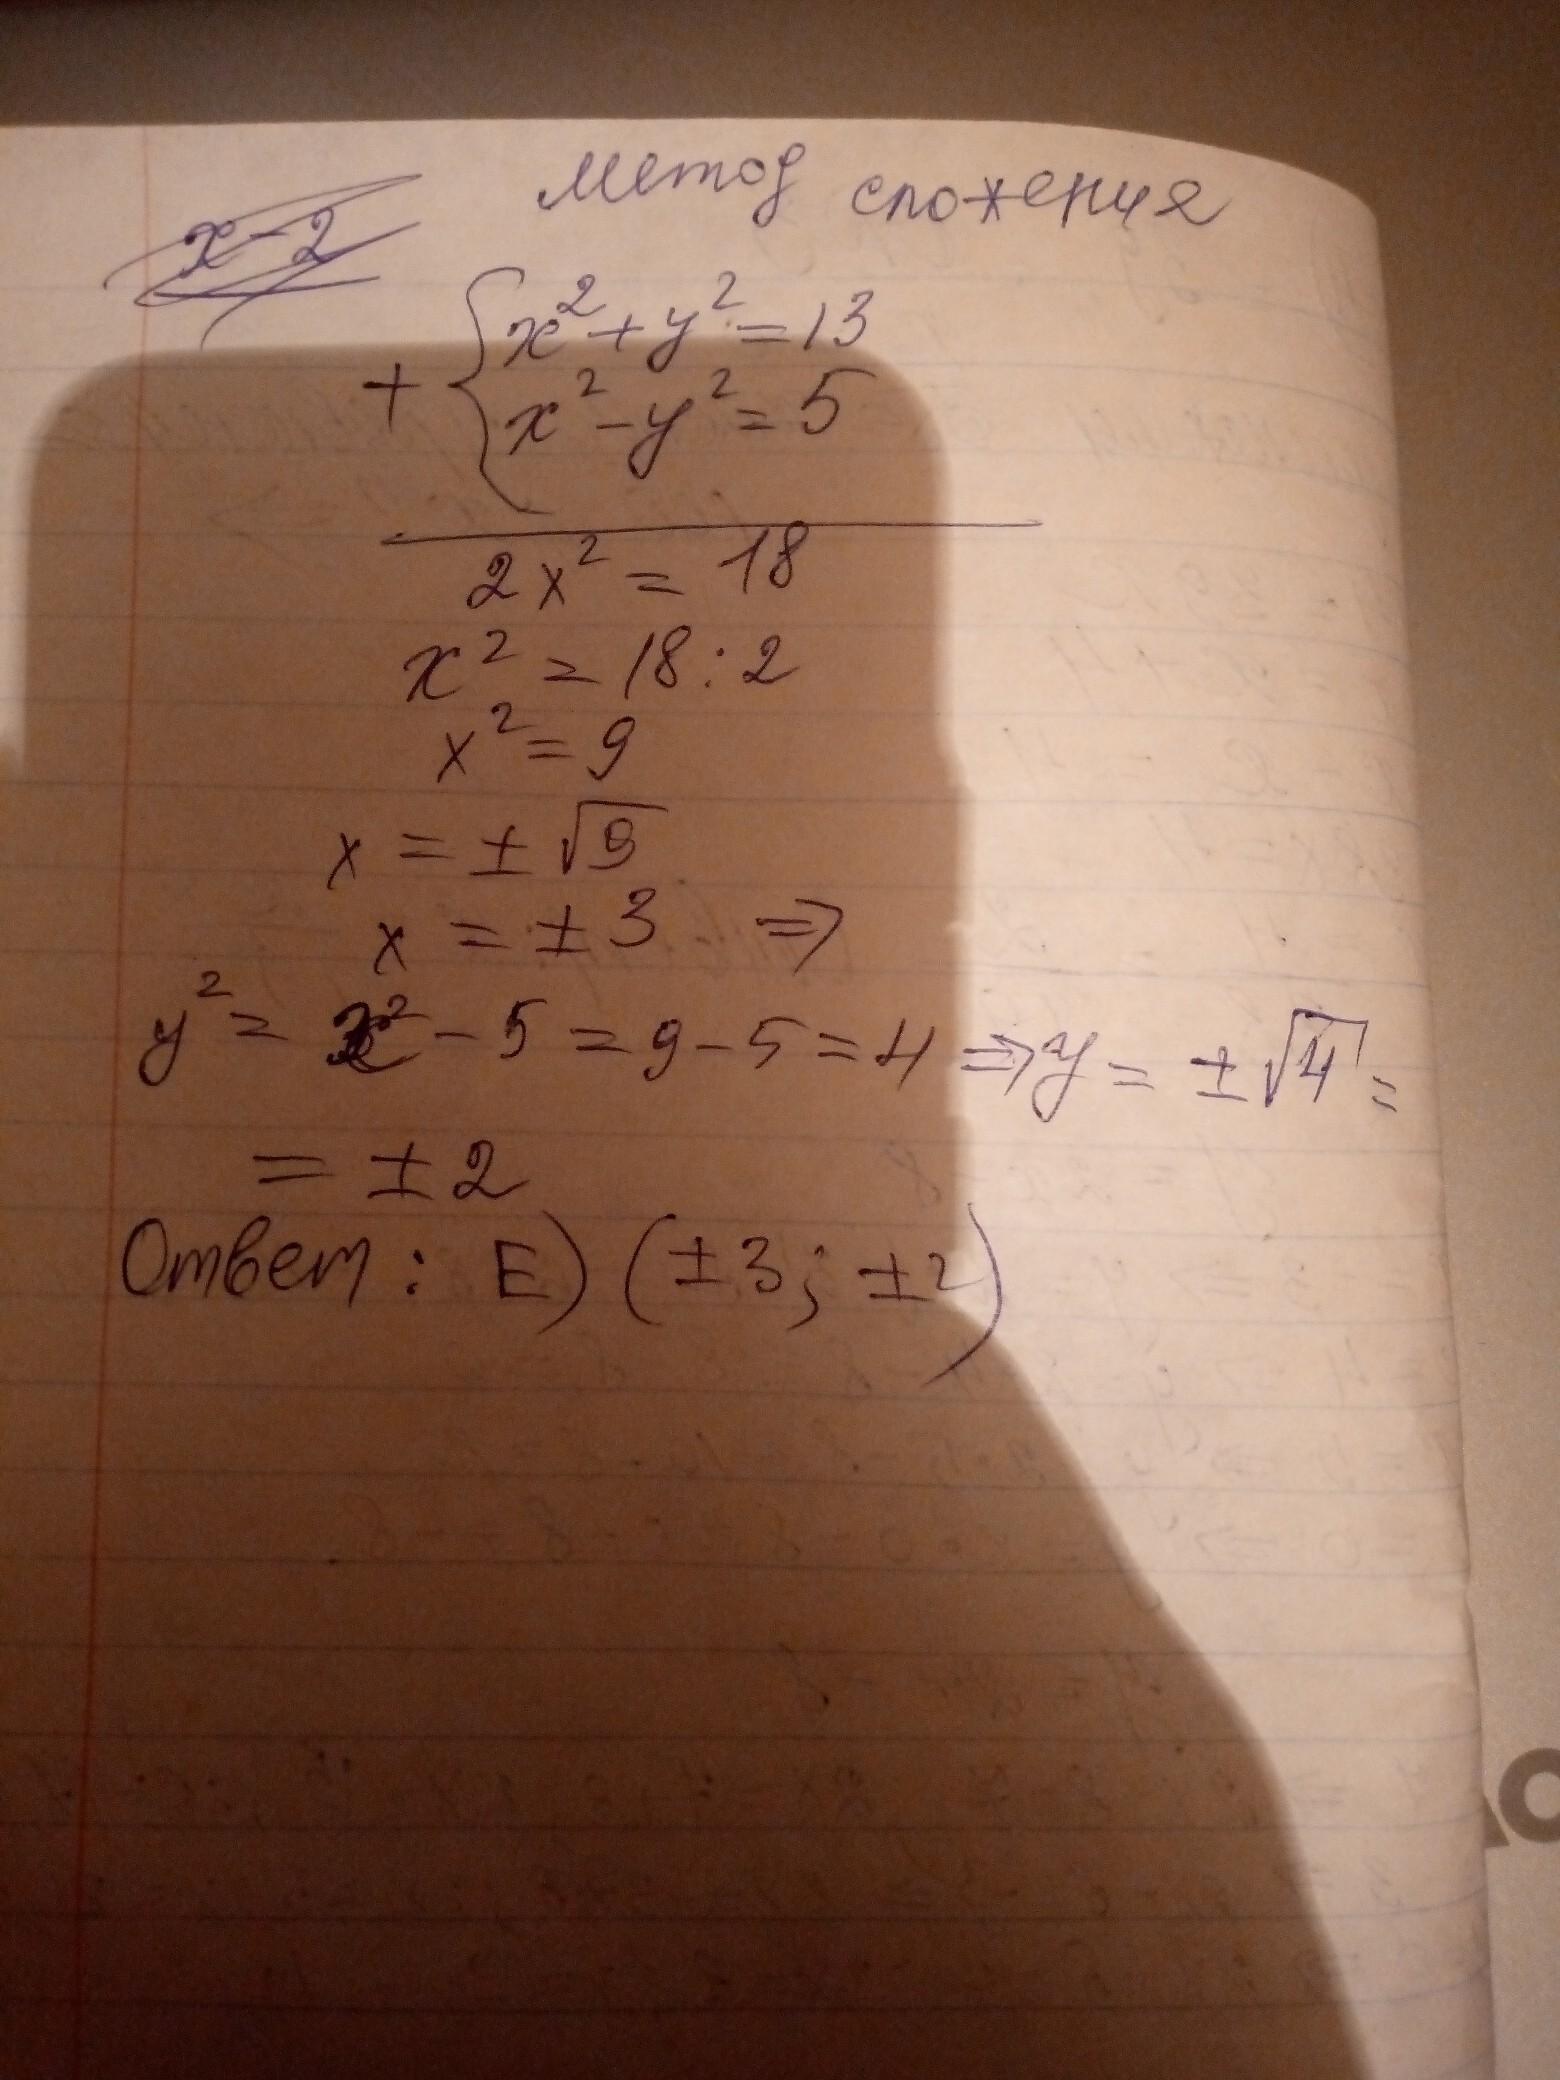 метод сложения
x-2
+ { x² + y² = 13
x² - y² = 5
2x² = 18
x² = 18 : 2
x² = 9
x = ± √9
x = ± 3 ⇒
y² = x² - 5 = 9 - 5 = 4 ⇒ y = ± √4 =
= ± 2
Ответ: E) (± 3; ± 2)